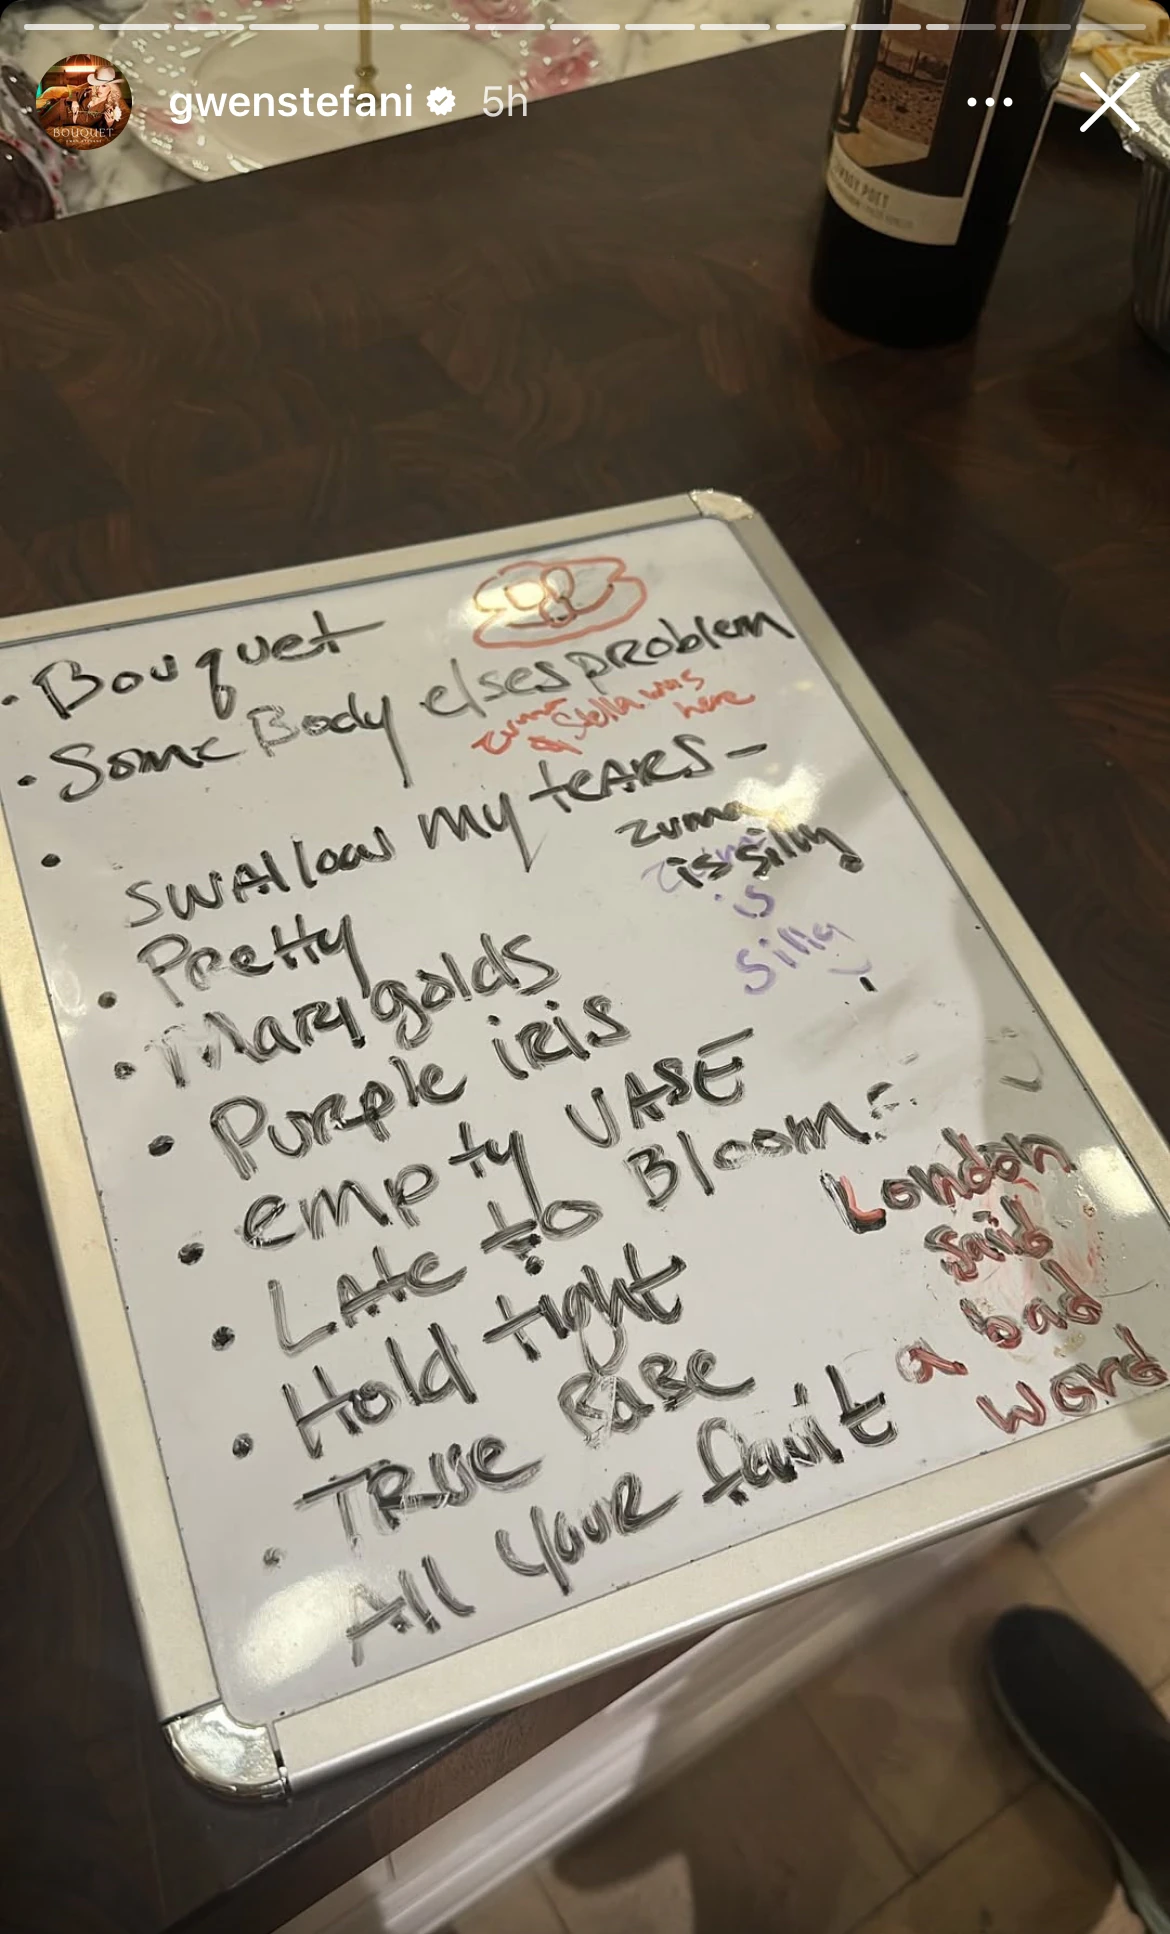 gwenstefani 5h
BOUQUET
POET
• Bouquet
• SomeBody elses problem
Zuma
& Stella was
here
• SWAllow my teARS -
zuma
is silly
is
Silly
• Pretty
• Marygolds
• Purple iris
• empty VASE
• LAte to Bloom
London
said
a bad
word
• Hold tight
• TRUE BABE
All youR fault